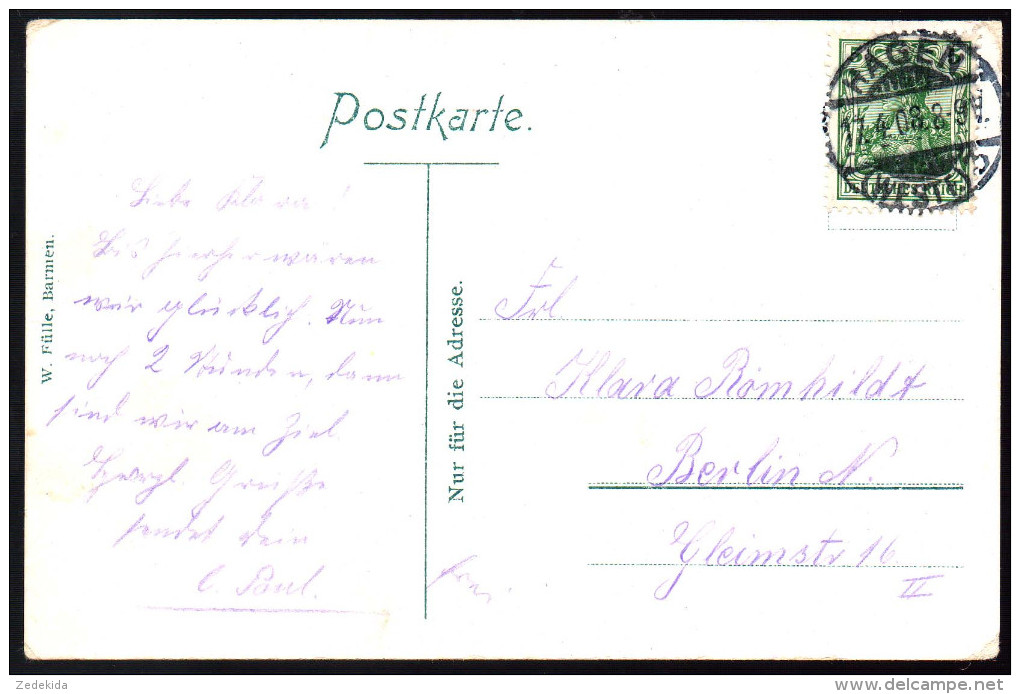 Postkarte.
5 5
HAGEN
17.4.08.8-9V.
(WESTF) 
DEUTSCHES REICH
W. Fülle, Barmen.
Liebe Klara!
Bis hierher wären
wir glücklich. Nun
noch 2 Stunden, dann
sind wir am Ziel.
Herzl. Grüße
sendet Dein
Paul.
Nur für die Adresse.
Frl.
Klara Römhildt
Berlin N.
Gleimstr 16
II
Zedekida